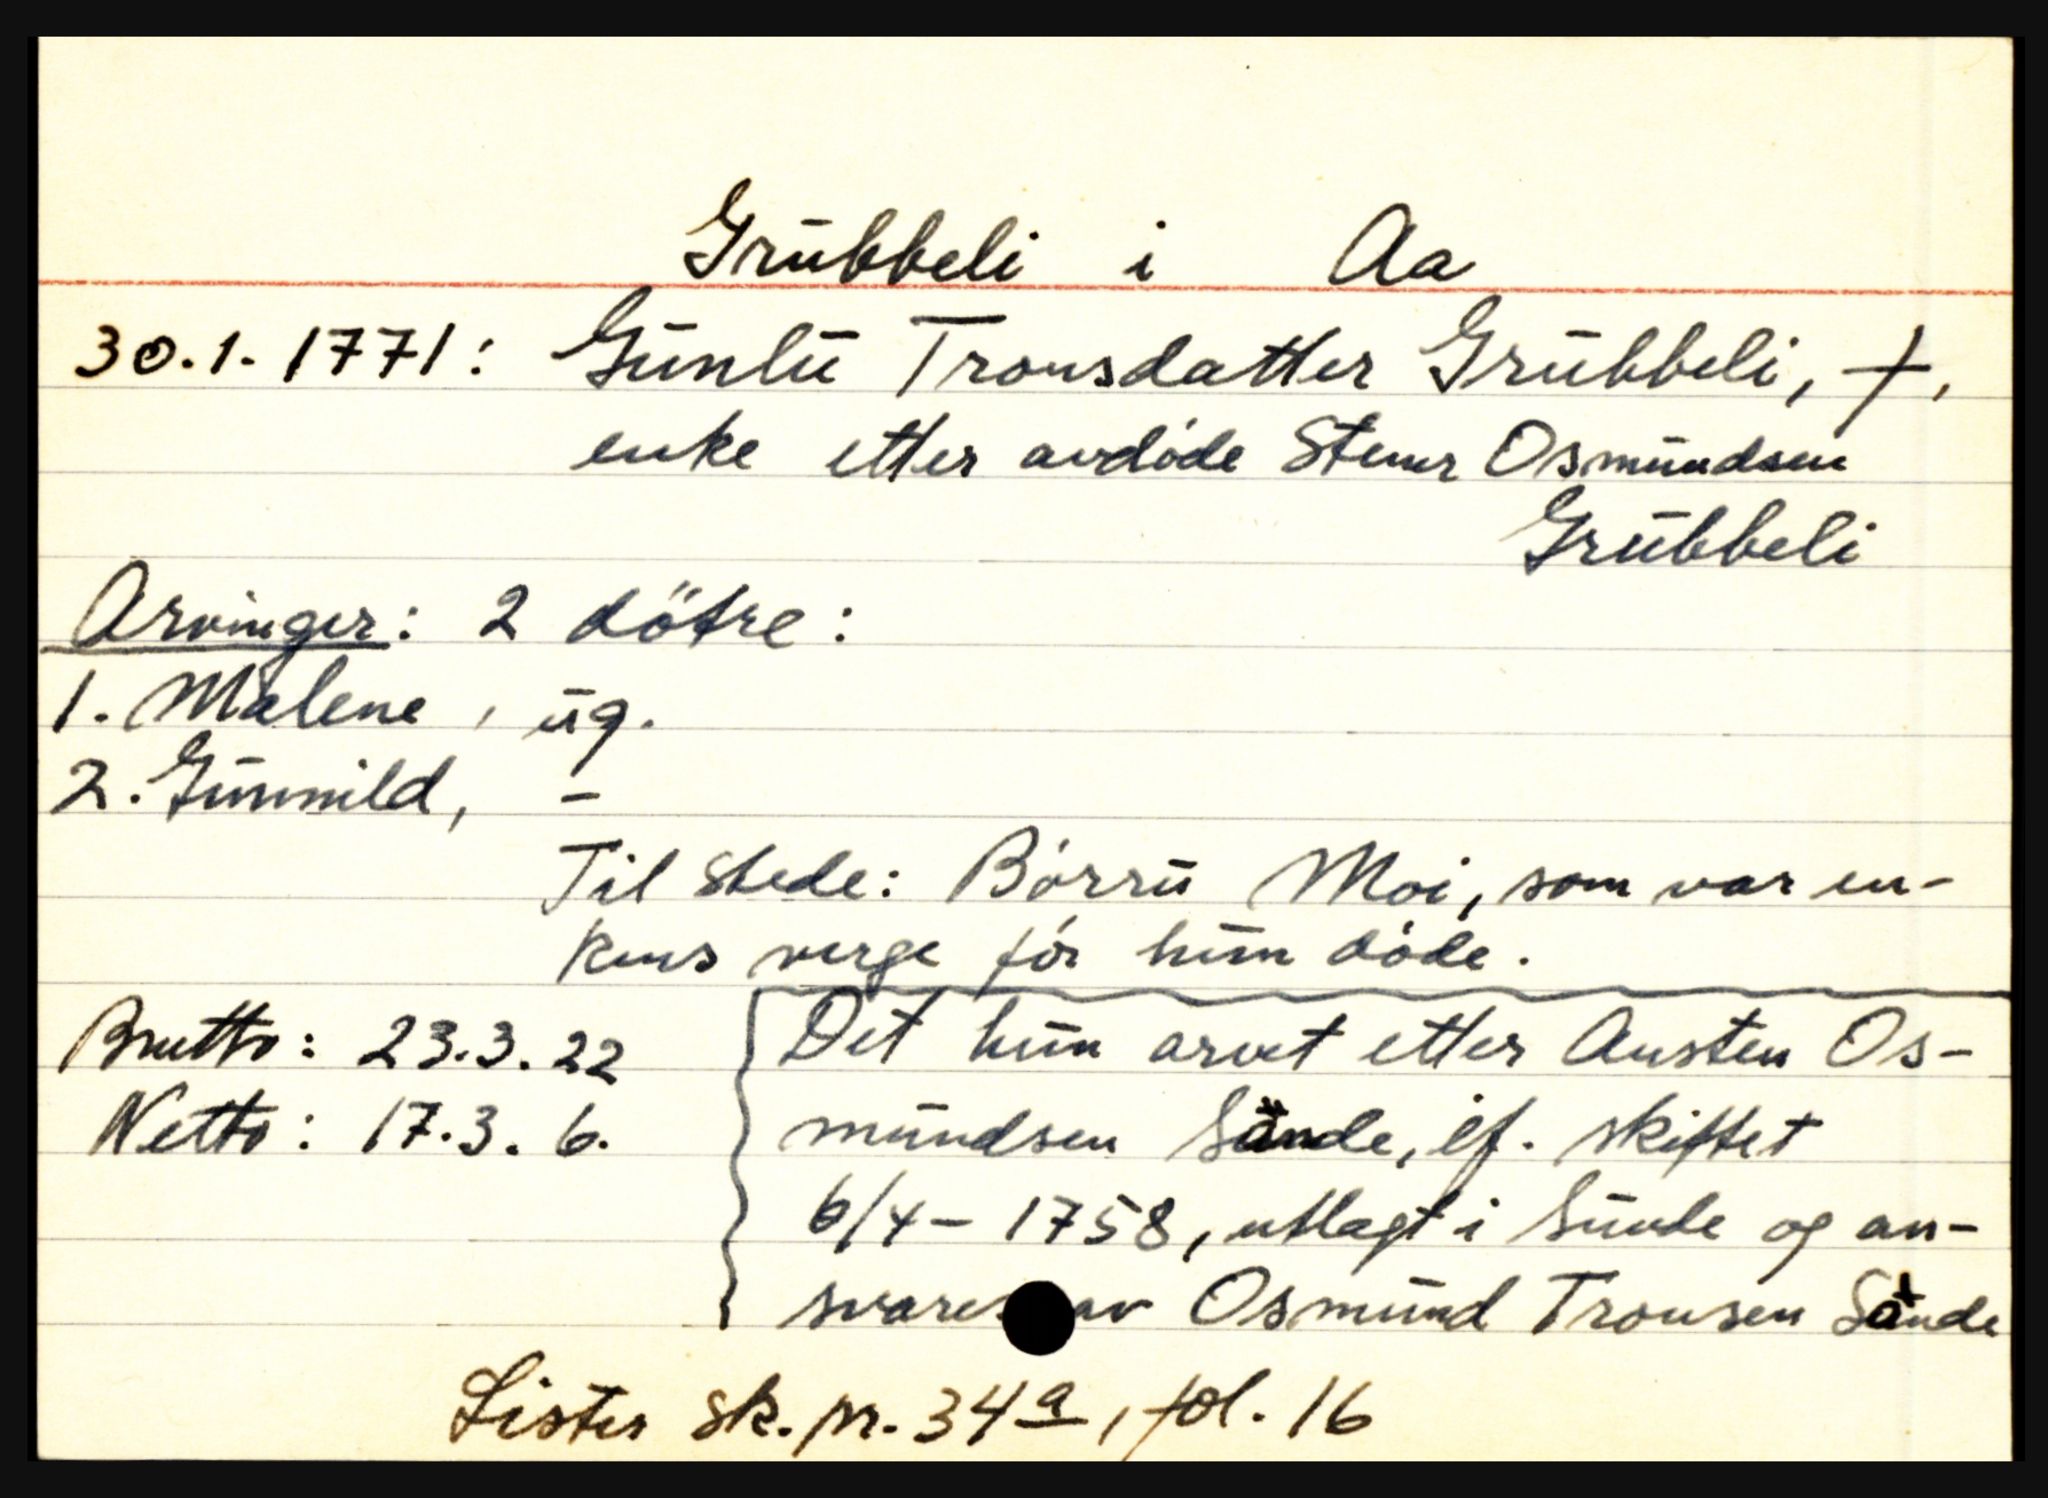 Grübbeli i Aa
30.1.1771: Günlü Tronsdatter Grübbeli, †,
enke etter avdöde Stener Osmündsen
Grübbeli
Arvinger: 2 dötre:
1. Malene, üg.
2. Günnild, -
Til stede: Börrü Moi, som var en-
kens verge för hün döde.
Brutto: 23.3.22
Netto: 17.3.6.
Det hün arvet etter Austen Os-
mündsen Sände, jf. skiftet
6/4 - 1758, utlagt i Sünde og an-
svares av Osmünd Tronsen Sände
Lister sk.pr. 34a, fol. 16